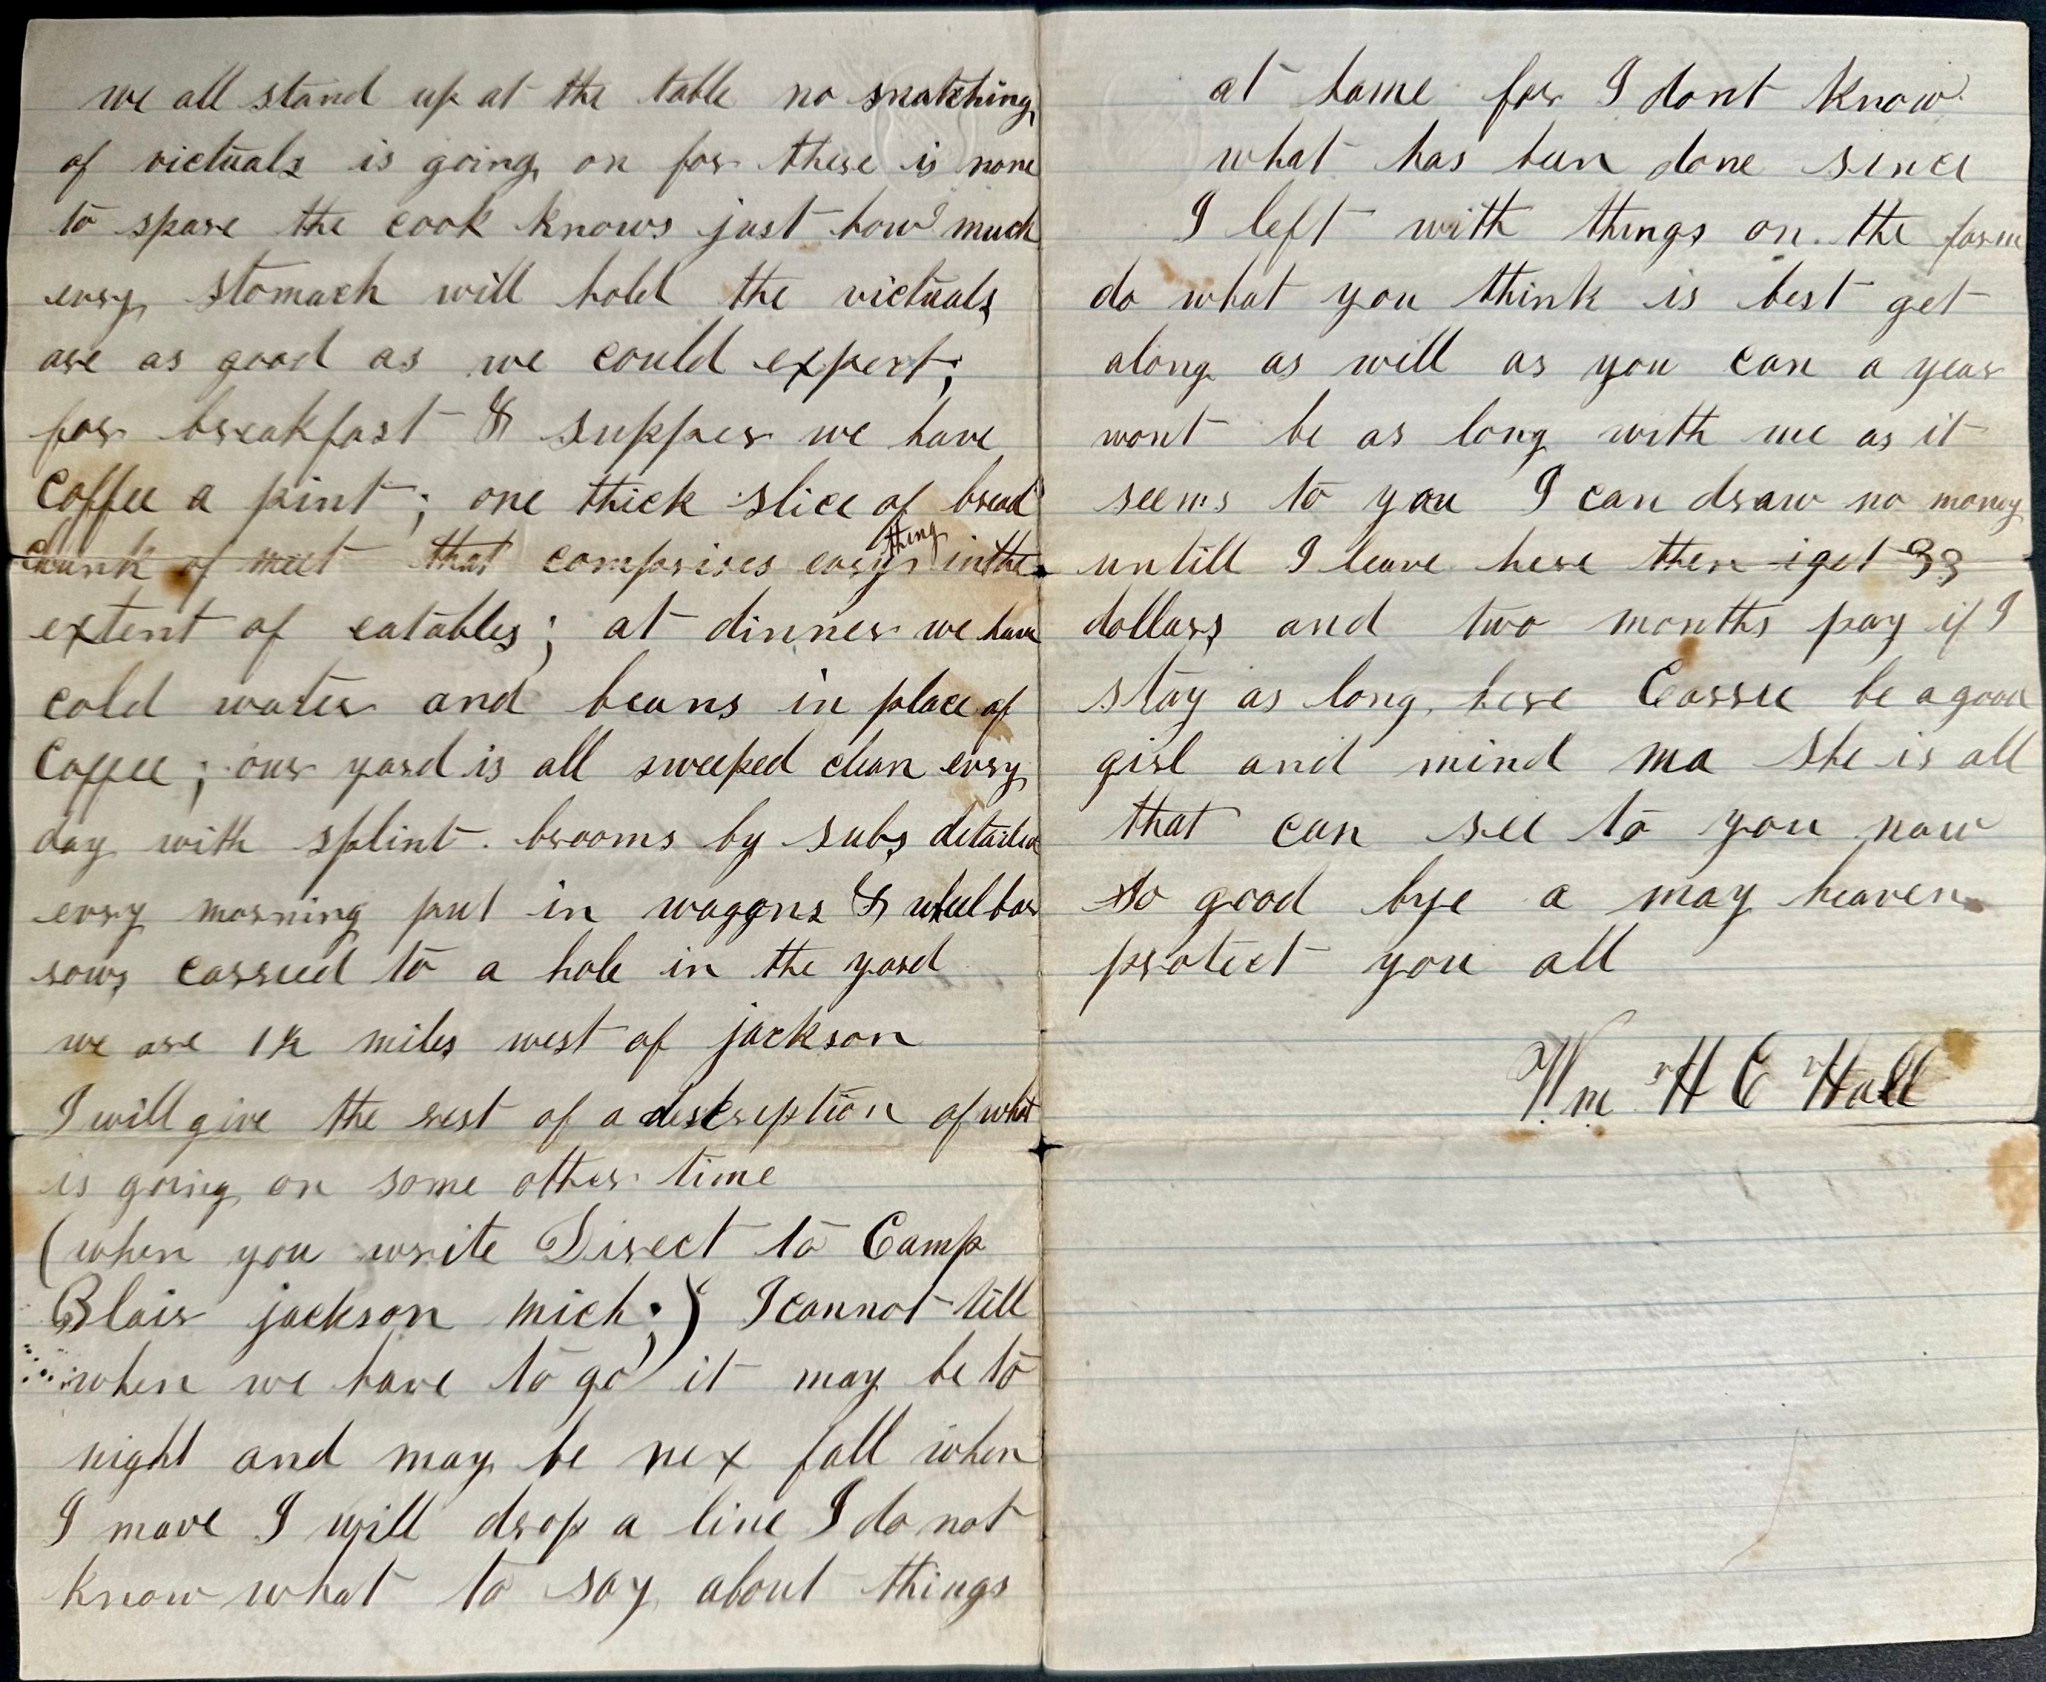 we all stand up at the table no snatching
of victuals is going on for there is none
to spare the cook knows just how much
evry stomach will hold the victuals
are as good as we could expect;
for breakfast & supper we have
Coffee a pint; one thick slice of bread
Chunk of meet that comprises evry thing in the
extent of eatables; at dinner we have
cold water and beans in place of
Coffee; our yard is all sweeped clean evry
day with splint brooms by subs detailed
evry morning put in waggons & wheelbar
rows carried to a hole in the yard
we are 1½ miles west of jackson
I will give the rest of a description of what
is going on some other time
(when you write Direct to Camp
Blair jackson mich;) I cannot tell
when we have to go it may be to
night and may be nex fall when
I move I will drop a line I do not
know what to say about things
at home for I dont know
what has been done since
I left with things on the farm
do what you think is best get
along as well as you can a year
wont be as long with me as it
seems to you I can draw no money
untill I leave here then i get 33
dollars and two months pay if I
stay as long here Carrie be a good
girl and mind ma she is all
that can see to you now
so good bye a may heaven
protect you all
Wm H E Hall